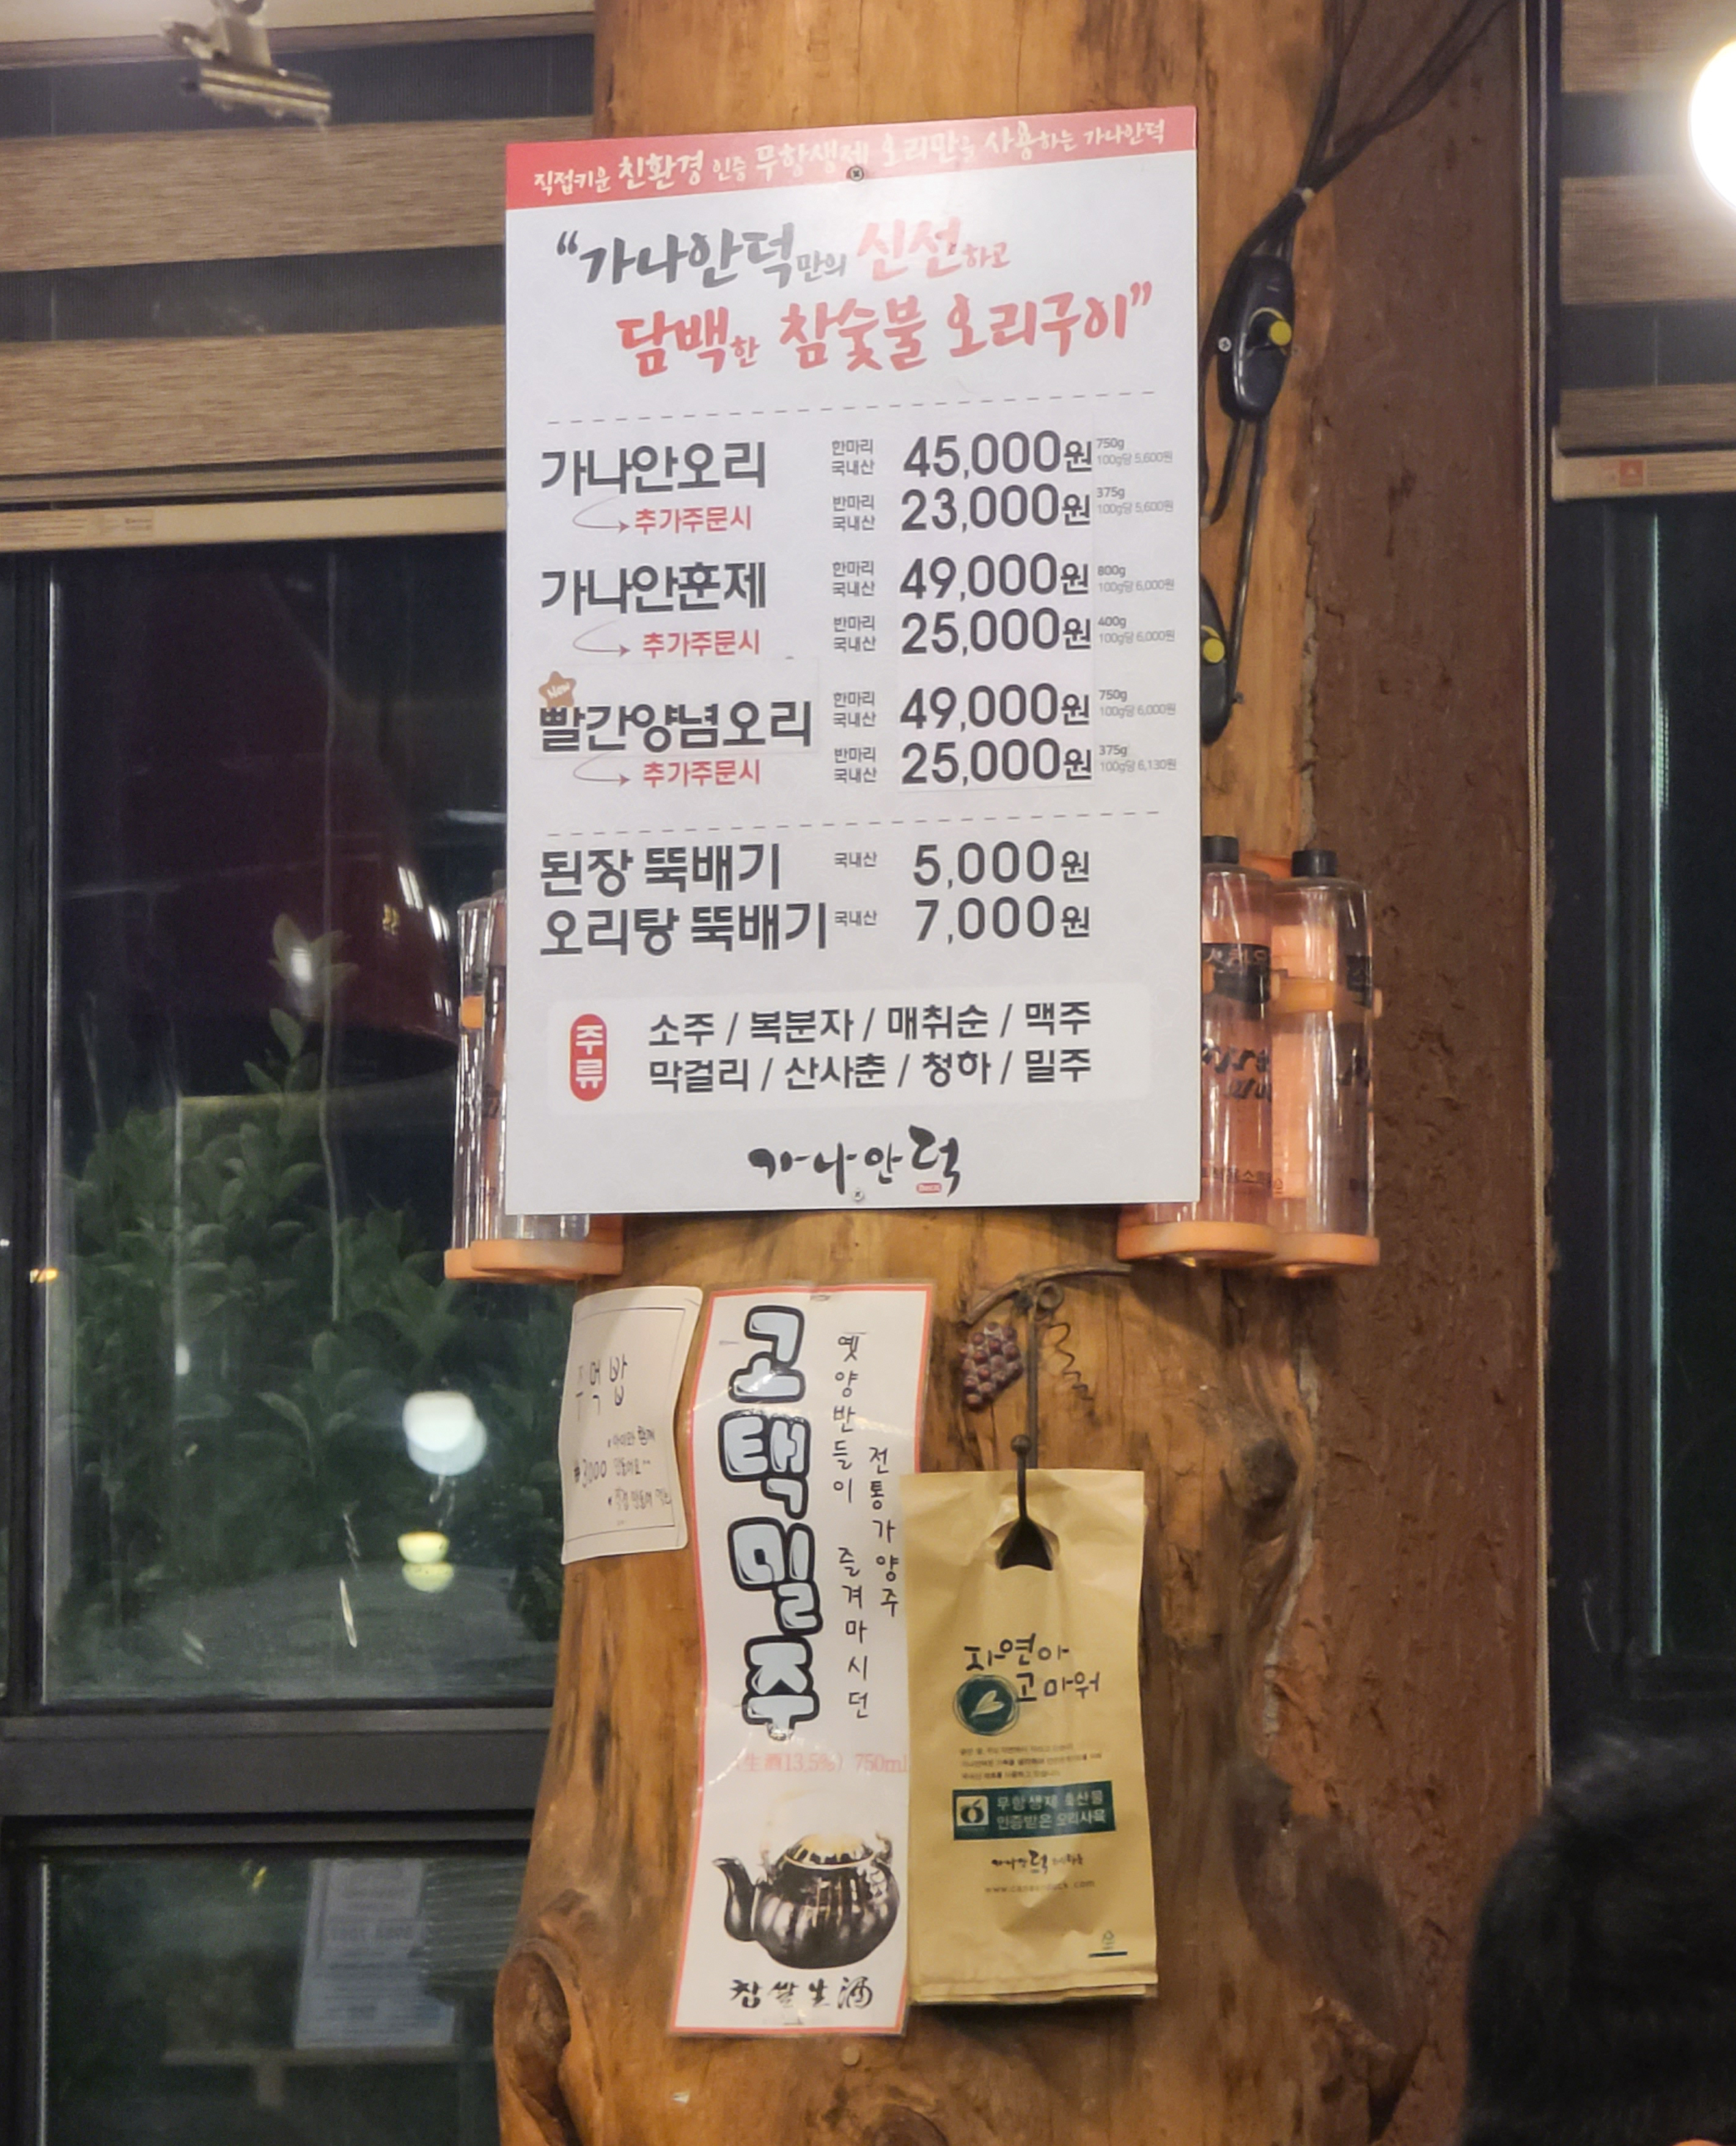 직접키운 친환경 인증 무항생제 오리만을 사용하는 가나안덕
“가나안덕만의 신선하고
담백한 참숯불 오리구이”
가나안오리 한마리 국내산 45,000원 750g 100g당 5,600원
추가주문시 반마리 국내산 23,000원 375g 100g당 5,600원
가나안훈제 한마리 국내산 49,000원 800g 100g당 6,000원
추가주문시 반마리 국내산 25,000원 400g 100g당 6,000원
New
빨간양념오리 한마리 국내산 49,000원 750g 100g당 6,000원
추가주문시 반마리 국내산 25,000원 375g 100g당 6,130원
된장 뚝배기 국내산 5,000원
오리탕 뚝배기 국내산 7,000원
주류
소주 / 복분자 / 매취순 / 맥주
막걸리 / 산사춘 / 청하 / 밀주
가나안덕
주먹밥
₩3000
고택밀주
옛양반들이 즐겨마시던
전통가양주
(生酒13.5%) 750ml
찹쌀生酒
자연아
고마워
무항생제 축산물
인증받은 오리사육
가나안덕